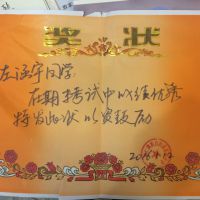 奖状
左 宇同学:
在期 考试中成绩优秀
特发此状以资鼓励